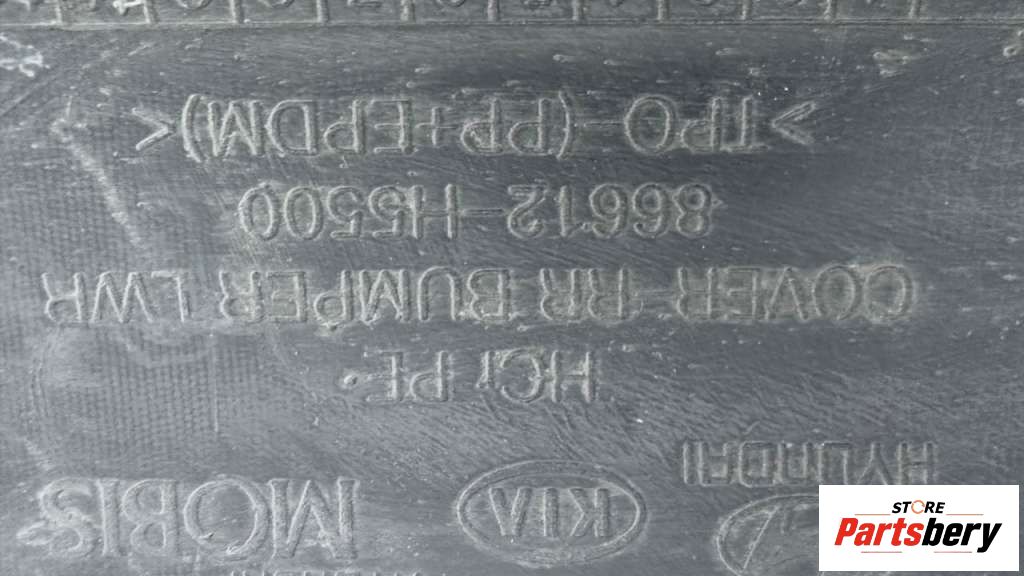 HYUNDAI
MOBIS KIA
HCr PE
COVER-RR BUMPER LWR
86612-H5500
>TPO-(PP+EPDM)<
STORE
Partsbery